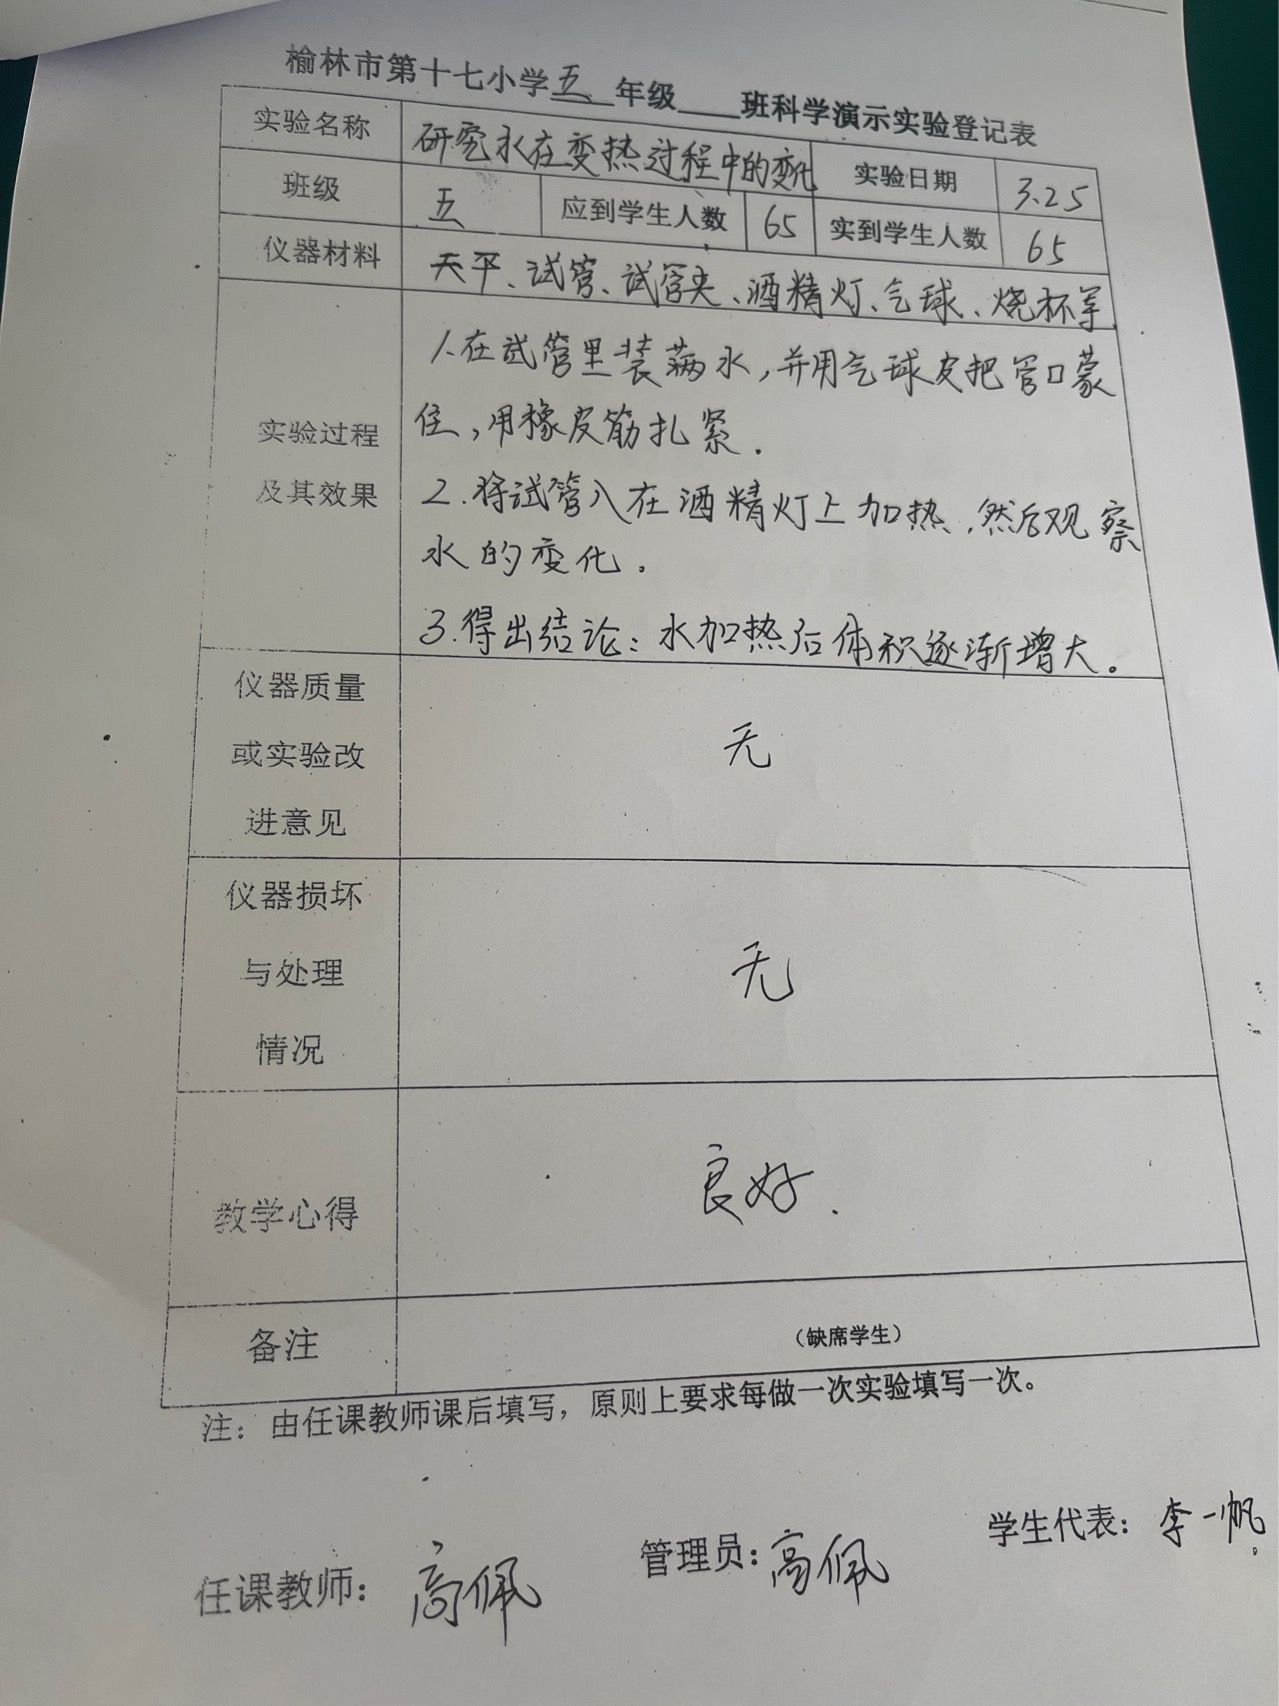 榆林市第十七小学五年级____班科学演示实验登记表
实验名称 研究水在变热过程中的变化 实验日期 3.25
班级 五 应到学生人数 65 实到学生人数 65
仪器材料 天平、试管、试管夹、酒精灯、气球、烧杯等
实验过程
及其效果
1.在试管里装满水,并用气球皮把管口蒙
住,用橡皮筋扎紧.
2.将试管入在酒精灯上加热,然后观察
水的变化。
3.得出结论:水加热后体积逐渐增大。
仪器质量
或实验改
进意见
无
仪器损坏
与处理
情况
无
教学心得 良好.
备注 (缺席学生)
注:由任课教师课后填写,原则上要求每做一次实验填写一次。
任课教师:高佩 管理员:高佩 学生代表:李一帆